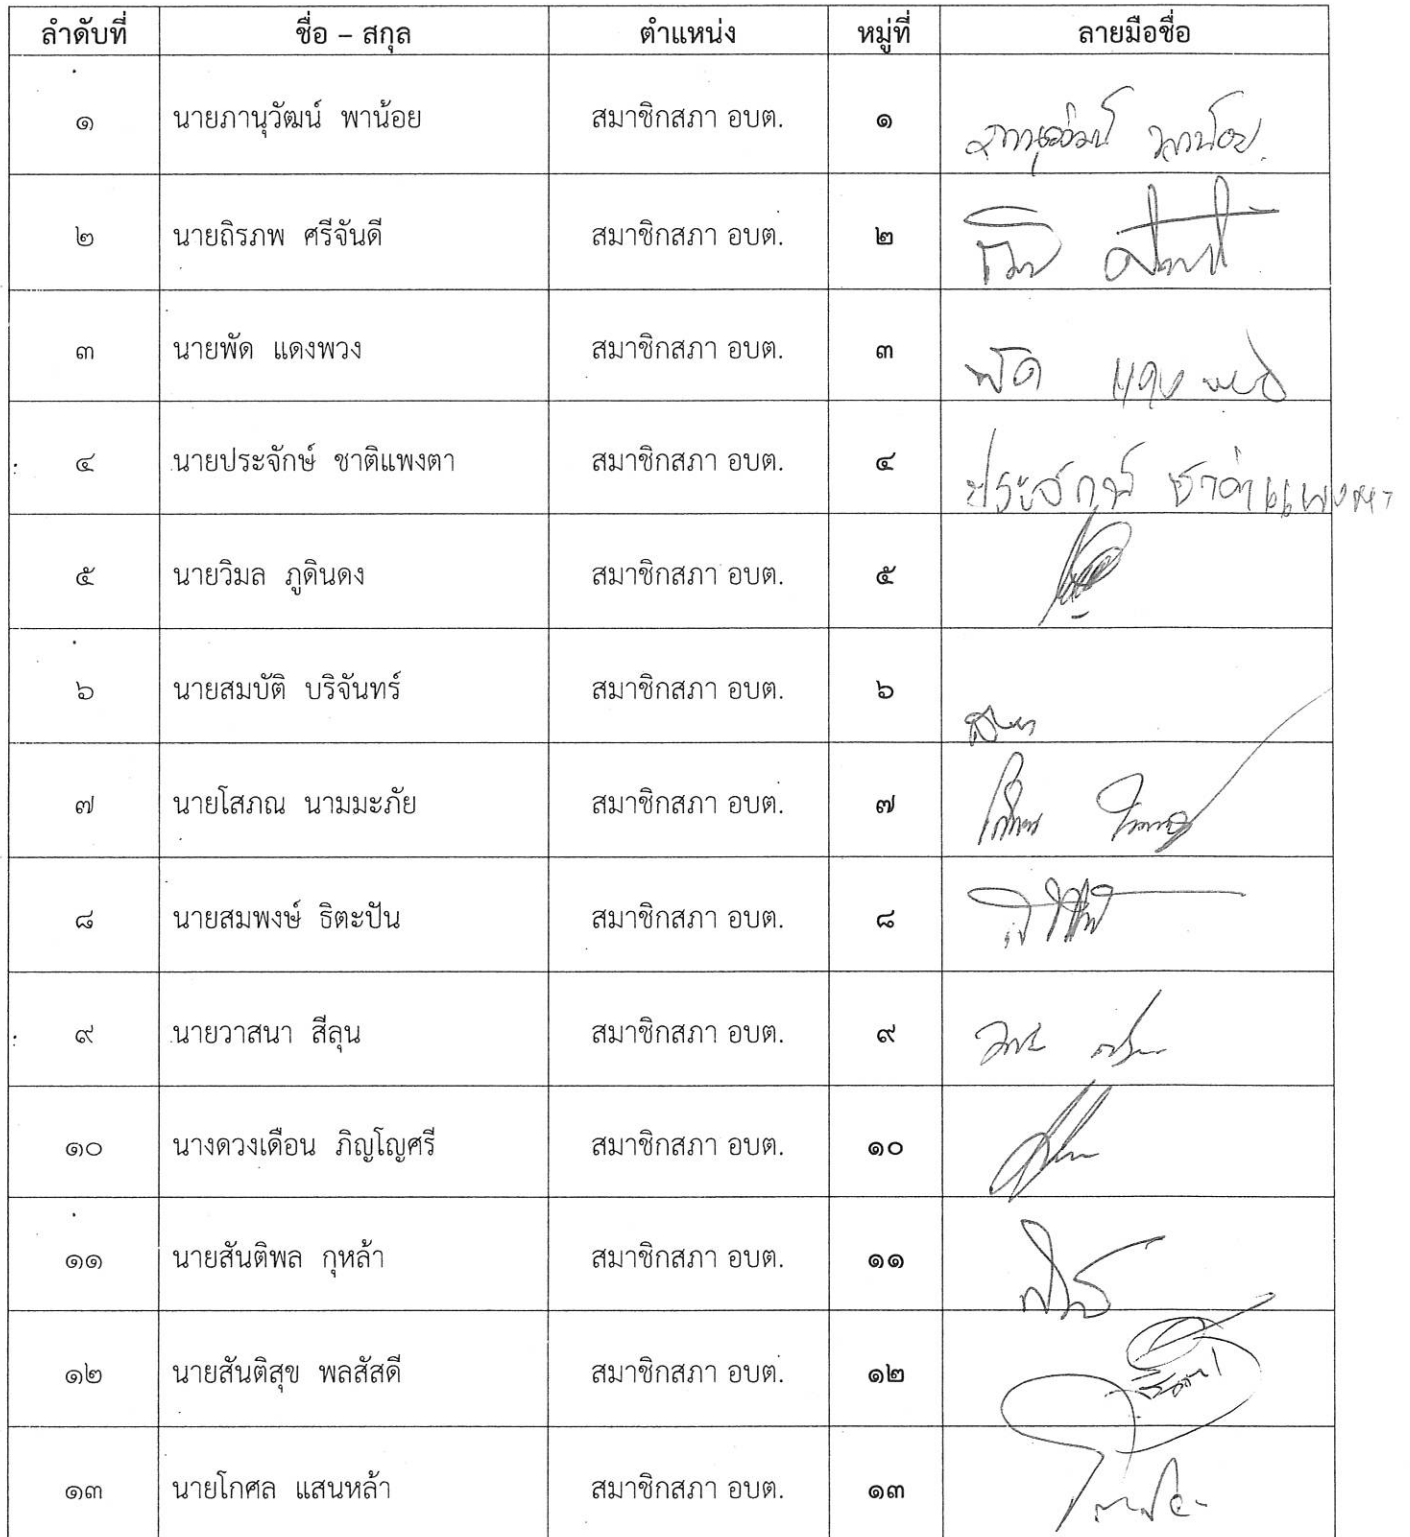 ลำดับที่ ชื่อ – สกุล ตำแหน่ง หมู่ที่ ลายมือชื่อ
๑ นายภานุวัฒน์ พาน้อย สมาชิกสภา อบต. ๑ ภานุวัฒน์ พาน้อย
๒ นายถิรภพ ศรีจันดี สมาชิกสภา อบต. ๒
๓ นายพัด แดงพวง สมาชิกสภา อบต. ๓ พัด แดงพวง
๔ นายประจักษ์ ชาติแพงตา สมาชิกสภา อบต. ๔ ประจักษ์ ชาติแพงตา
๕ นายวิมล ภูดินดง สมาชิกสภา อบต. ๕
๖ นายสมบัติ บริจันทร์ สมาชิกสภา อบต. ๖
๗ นายโสภณ นามมะภัย สมาชิกสภา อบต. ๗
๘ นายสมพงษ์ ธิตะปัน สมาชิกสภา อบต. ๘
๙ นายวาสนา สีลุน สมาชิกสภา อบต. ๙
๑๐ นางดวงเดือน ภิญโญศรี สมาชิกสภา อบต. ๑๐
๑๑ นายสันติพล กุหล้า สมาชิกสภา อบต. ๑๑
๑๒ นายสันติสุข พลสัสดี สมาชิกสภา อบต. ๑๒
๑๓ นายโกศล แสนหล้า สมาชิกสภา อบต. ๑๓